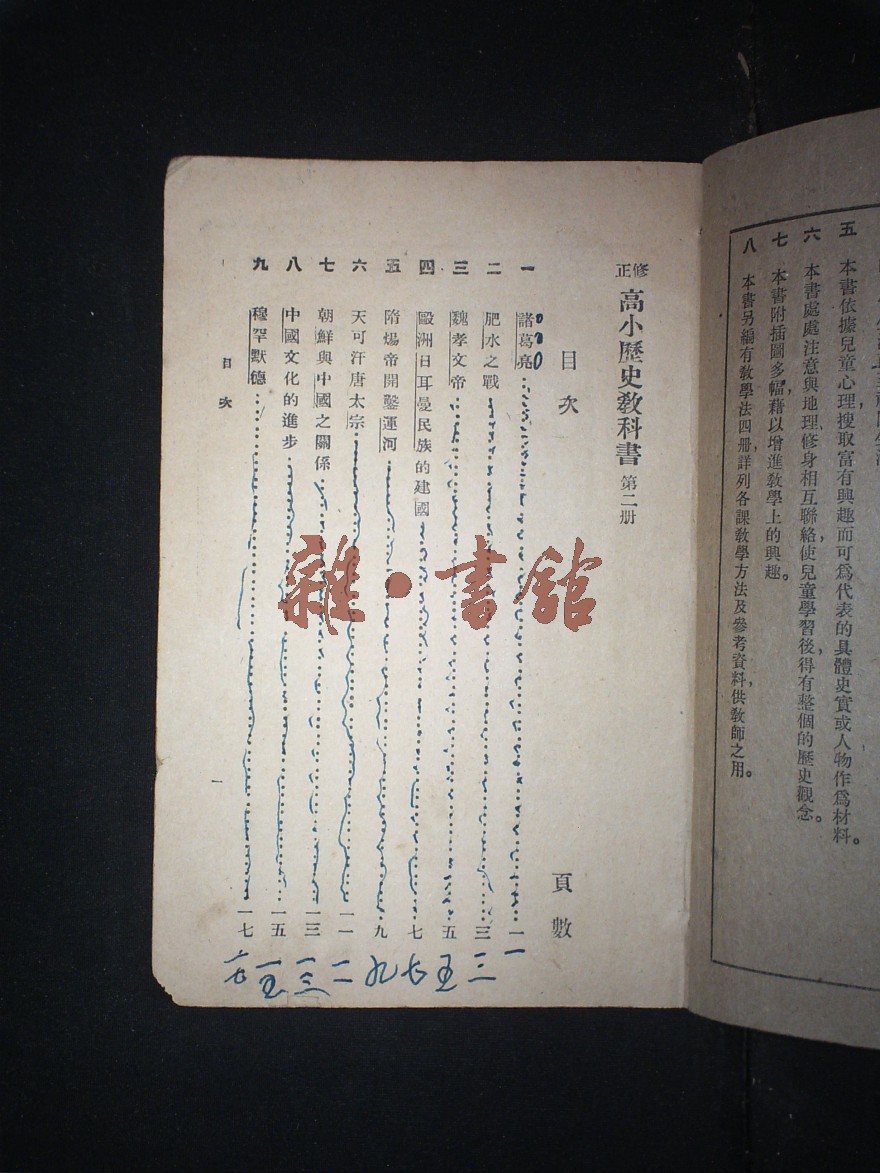 五　本書依據兒童心理搜取富有興趣而可爲代表的具體史實或人物作爲材料。
六　本書處處注意與地理修身相互聯絡，使兒童學習後，得有整個的歷史觀念。
七　本書附插圖多幅，藉以增進教學上的興趣。
八　本書另編有教學法四册，詳列各課教學方法及參考資料，供教師之用。
修正　高小歷史教科書　第二册
目次
頁數
一　諸葛亮……一
二　肥水之戰……三
三　魏孝文帝……五
四　歐洲日耳曼民族的建國……七
五　隋煬帝開鑿運河……九
六　天可汗唐太宗……一一
七　朝鮮與中國之關係……一三
八　中國文化的進步……一五
九　穆罕默德……一七
目次
一
一
三
五
七
九
一一
一三
一五
一七
雜·書館